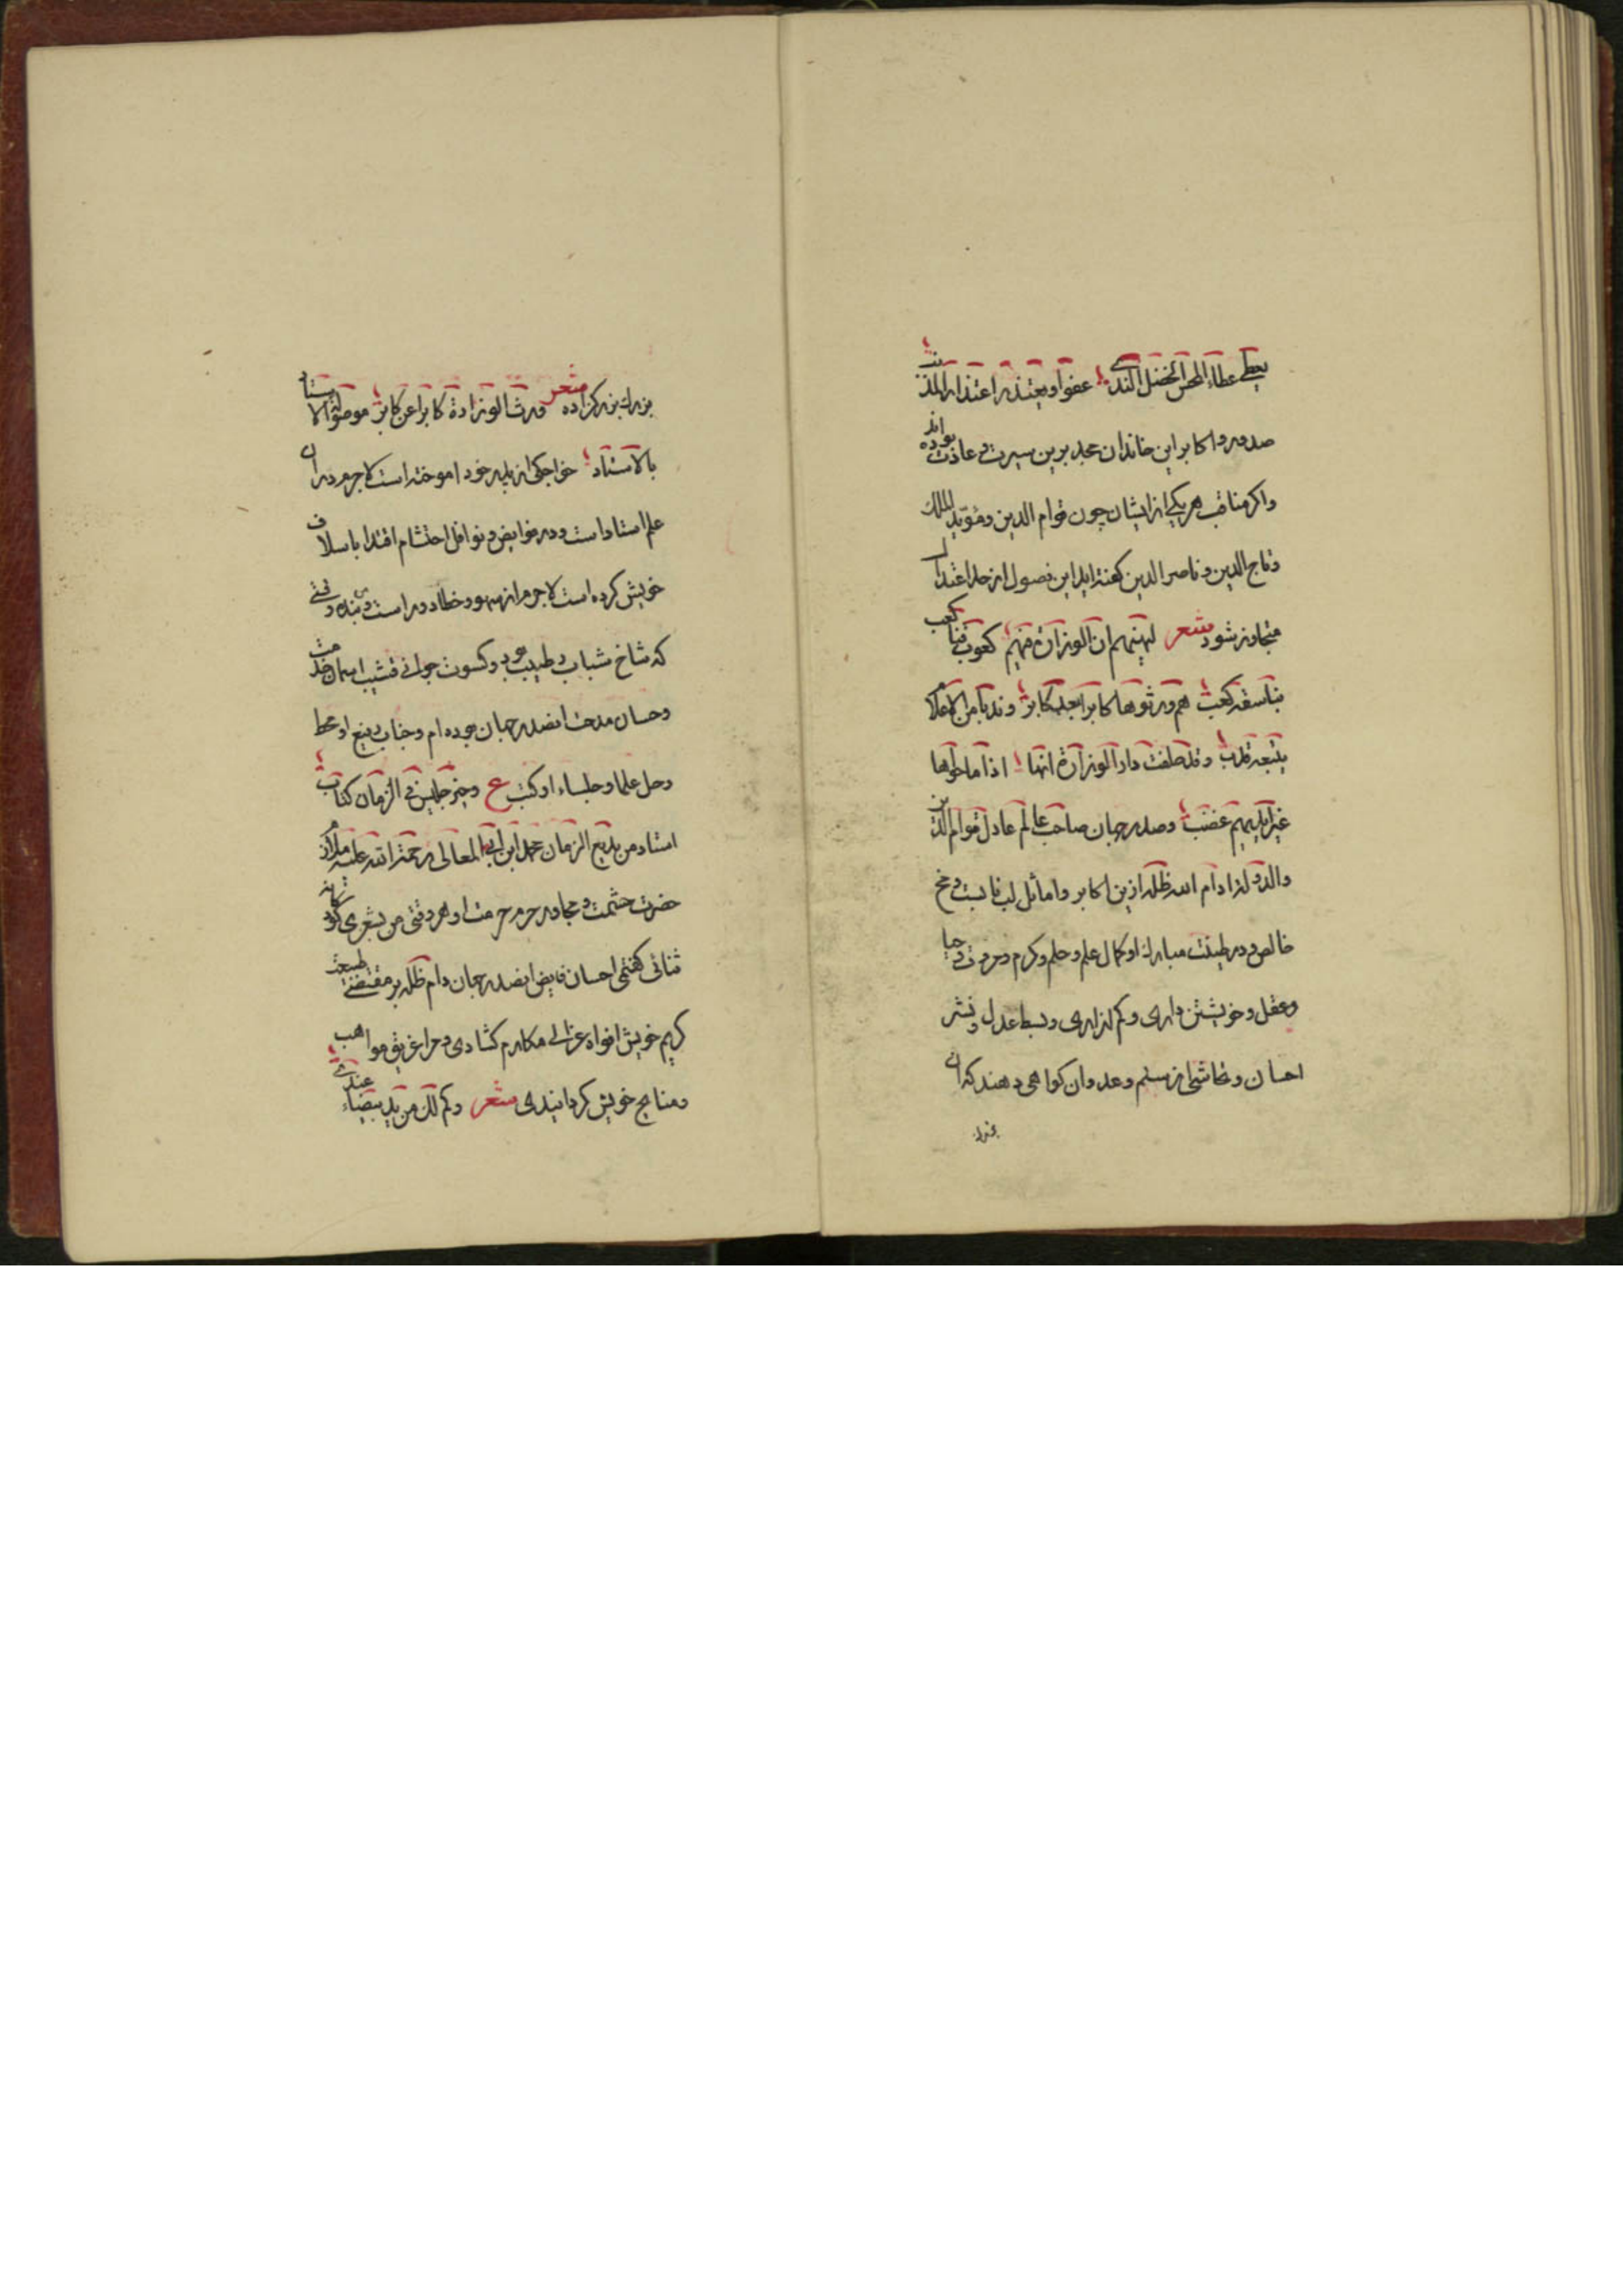 یعطی عطاء المحسن الخضل الندی عفوا و یعتذر اعتذار المذنب
صدور و اکابر این خاندان مجد برین سیرت و عادت بوده اند
و اکر مناقب هر یکی از ایشان چون قوام الدین و مؤید الملک
و تاج الدین و ناصر الدین کفته اید این فصول از حد اعتدال
متجاوز شود شعر لیهنهم ان الوزارة فیهم کعوب قنا کعب
یناسقه کعب هم ورثوها کابرا بعد کابر و ندبا من الاملاک
یتبعه ندب و قد حلفت دار الوزارة انها اذا ما حواها
غیر ایدیهم غضب و صدر جهان صاحب عالم عادل قوام الدین
و الدولة ادام الله ظله ازین اکابر و اماثل لب لبابست و مخ
خالص و در طینت مبارک او کمال علم و حلم و کرم و مروت و حیا
و عقل و خویشتن داری و کم ازاری و بسط عدل و نشر
احسان و تحاشی از ستم و عدوان کواهی دهند که ان
بزرک
بزرک بزرکزاده شعر ورث الوزارة کابرا عن کابر موصولة الاسناد
بالاسناد خواجکی از پدر خود اموخته است لاجرم در ان
علم استاد است و در فرایض و نوافل احتشام اقتدا باسلاف
خویش کرده است لاجرم از سهو و خطا دور است و من بنده وقتی
که شاخ شباب رطیب بود و کسوت جوانی قشیب اسمان خدمت
و حسان مدحت انصدر جهان بوده ام و جناب رفیع او محط
رحل علما و جلساء او کتب ع و خیر جلیس فی الزمان کتاب
استاد من بدیع الزمان محمد ابن ابی المعالی رحمة الله علیه ملازم
حضرت حشمت و مجاور حرم حرمت او هر وقتی من بشعری کوثر
ثنائی کفتمی احسان فایض انصدر جهان دام ظله بر مقتضی طبیعت
کریم خویش افواه عزالی مکارم کشادی و مرا غریق مواهب
و منایح خویش کردانیدی شعر وکم لک من ید بیضاء عندی